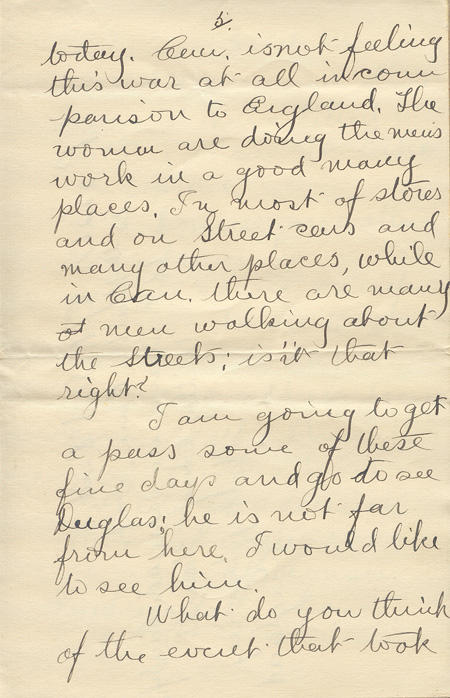 5.
today. Can. is not feeling
this war at all in com
parison to England. The
woman are doing the men's
work in a good many
places. In most of stores
and on Street cars and
many other places, while
in Can. there are many
men walking about
the Streets; is'it that
right?
I am going to get
a pass some of these
fine days and go to see
Duglas; he is not far
from here. I would like
to see him.
What do you think
of the event that took